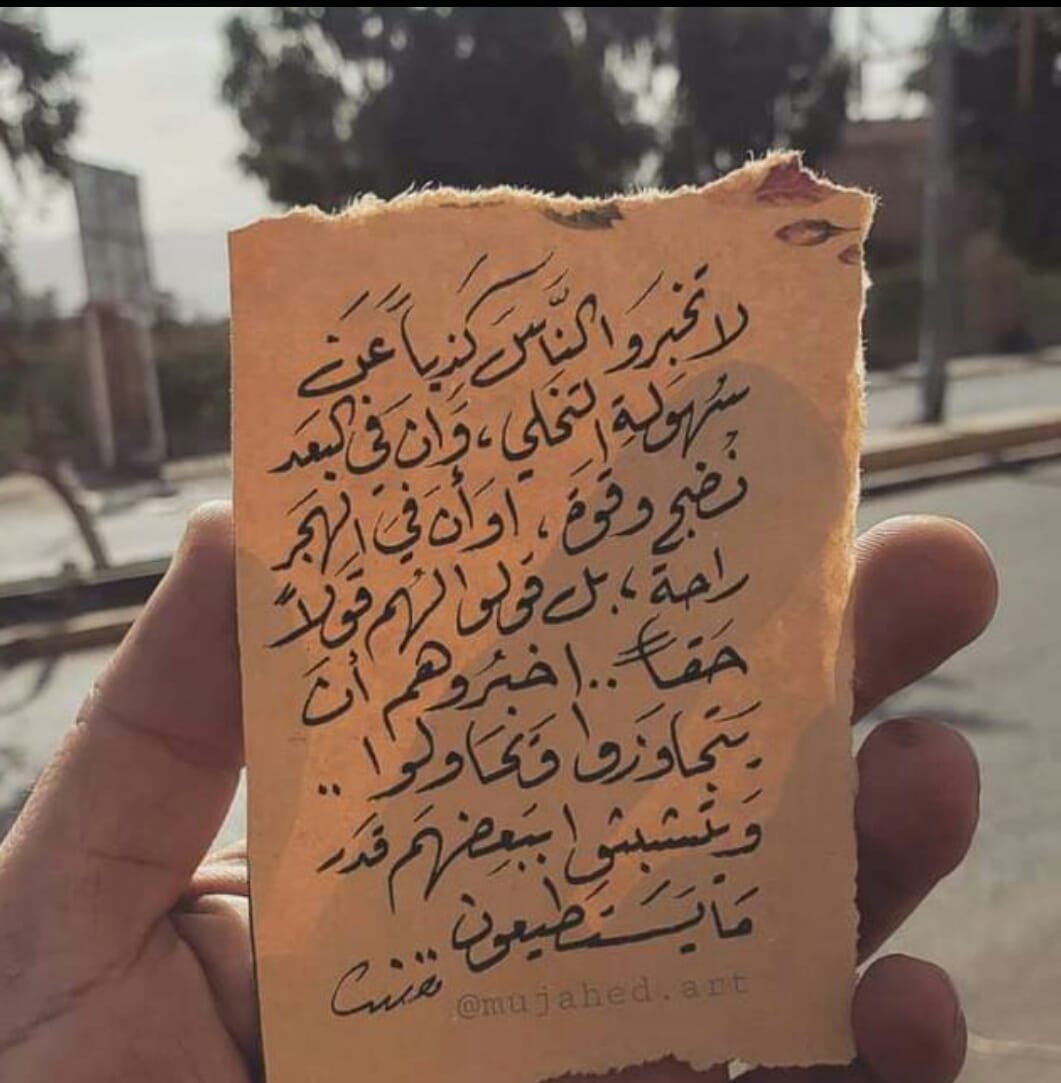 لا تخبروا النَّاسَ كَذِباً عَن
سُهَولَةِ التخَلي ، وَان في البعَد
نُضج وقوَة ، اوَ أن في الهجَر
راحة ؛ بل قولوا لهُم قولاً
حَقاً .. اخبُروهم أن
يَتجاوَزوا وَيحَاولوا ..
وَيتشبثوا ببَعِضهَم قدَر
مَا يَسَتطيعون
@mujahed.art